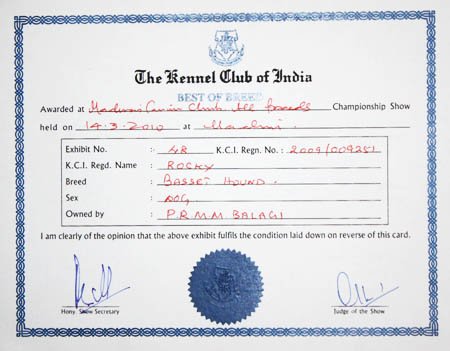 The Kennel Club of India
BEST OF BREED
Awarded at Madurai Canine Club All Breeds Championship Show
held on 14-3-2010 at Madurai.
Exhibit No. : 48 K.C.I. Regn. No. : 2009/009251
K.C.I. Regd. Name : ROCKY
Breed : BASSET HOUND.
Sex : DOG
Owned by : P.R.M.M BALAGI
I am clearly of the opinion that the above exhibit fulfils the condition laid down on reverse of this card.
Hony. Show Secretary Judge of the Show